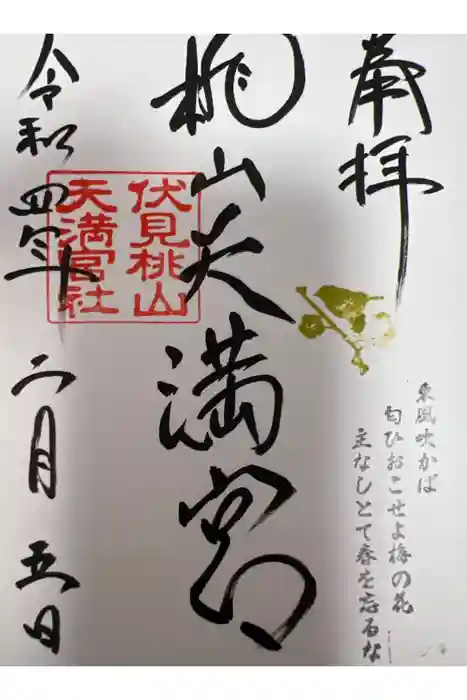 奉拝
桃山天満宮
伏見桃山
天満宮社
令和四年 二月 五日
東風吹かば
匂ひおこせよ梅の花
主なしとて春を忘るな